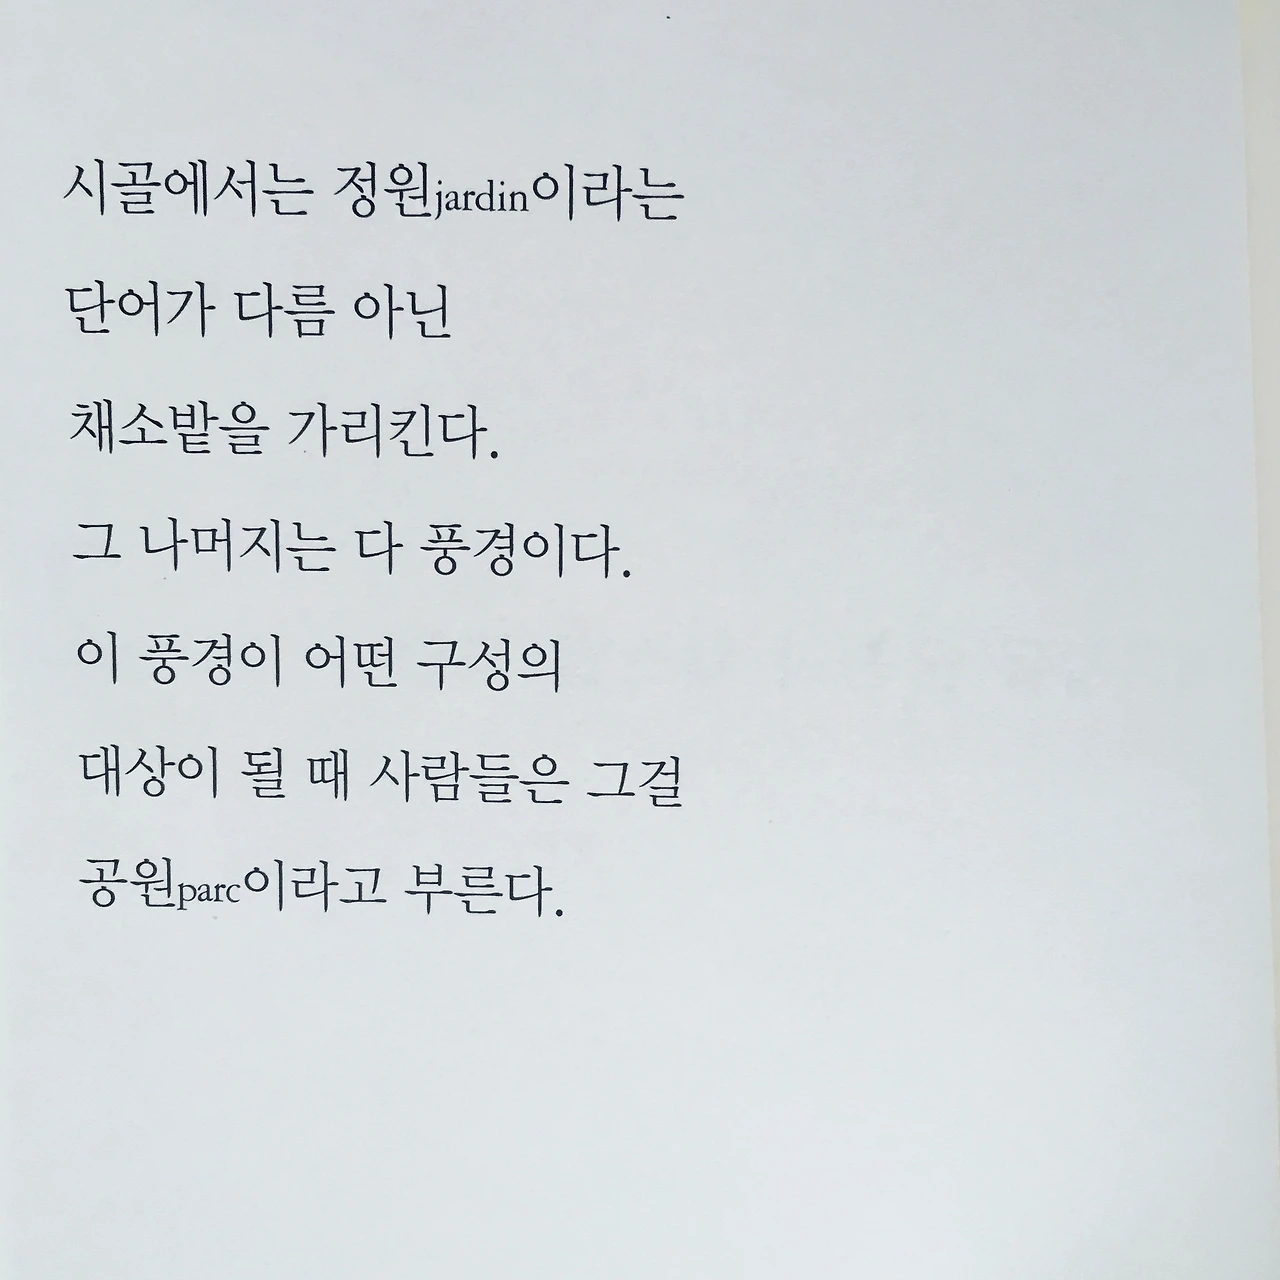 시골에서는 정원jardin이라는
단어가 다름 아닌
채소밭을 가리킨다.
그 나머지는 다 풍경이다.
이 풍경이 어떤 구성의
대상이 될 때 사람들은 그걸
공원parc이라고 부른다.